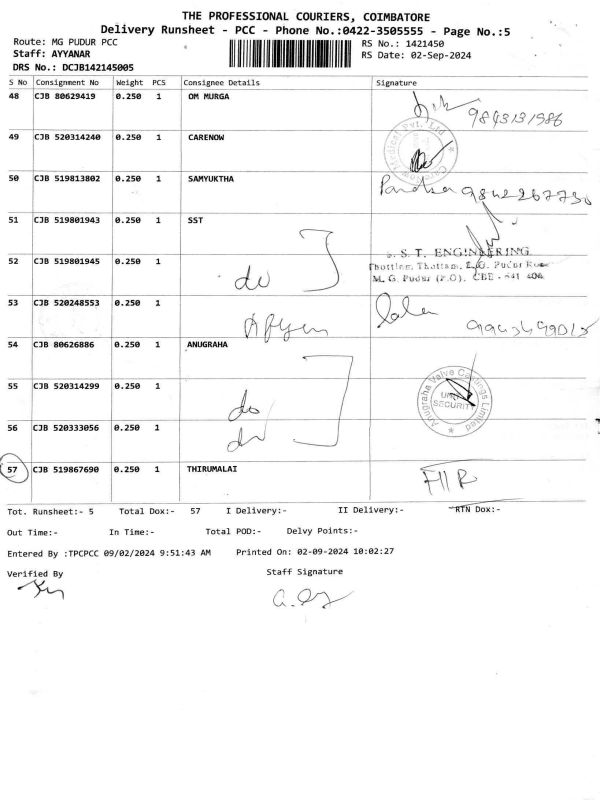 THE PROFESSIONAL COURIERS, COIMBATORE
Delivery Runsheet - PCC - Phone No.:0422-3505555 - Page No.:5
Route: MG PUDUR PCC RS No.: 1421450
Staff: AYYANAR RS Date: 02-Sep-2024
DRS No.: DCJB142145005
S No Consignment No Weight PCS Consignee Details Signature
48 CJB 80629419 0.250 1 OM MURGA
9843131986
49 CJB 520314240 0.250 1 CARENOW
CareNow Medical Pvt. Ltd
50 CJB 519813802 0.250 1 SAMYUKTHA
9842267750
51 CJB 519801943 0.250 1 SST
S. S. T. ENGINEERING
52 CJB 519801945 0.250 1 do
Thottam, M. G. Pudur
M. G. Pudur (P.O). CBE - 641 406
53 CJB 520248553 0.250 1
54 CJB 80626886 0.250 1 ANUGRAHA
Anugraha Valve Castings Limited
UNIT
SECURITY
55 CJB 520314299 0.250 1 do
56 CJB 520333056 0.250 1 do
57 CJB 519867690 0.250 1 THIRUMALAI
Tot. Runsheet:- 5 Total Dox:- 57 I Delivery:- II Delivery:- RTN Dox:-
Out Time:- In Time:- Total POD:- Delvy Points:-
Entered By :TPCPCC 09/02/2024 9:51:43 AM Printed On: 02-09-2024 10:02:27
Verified By Staff Signature